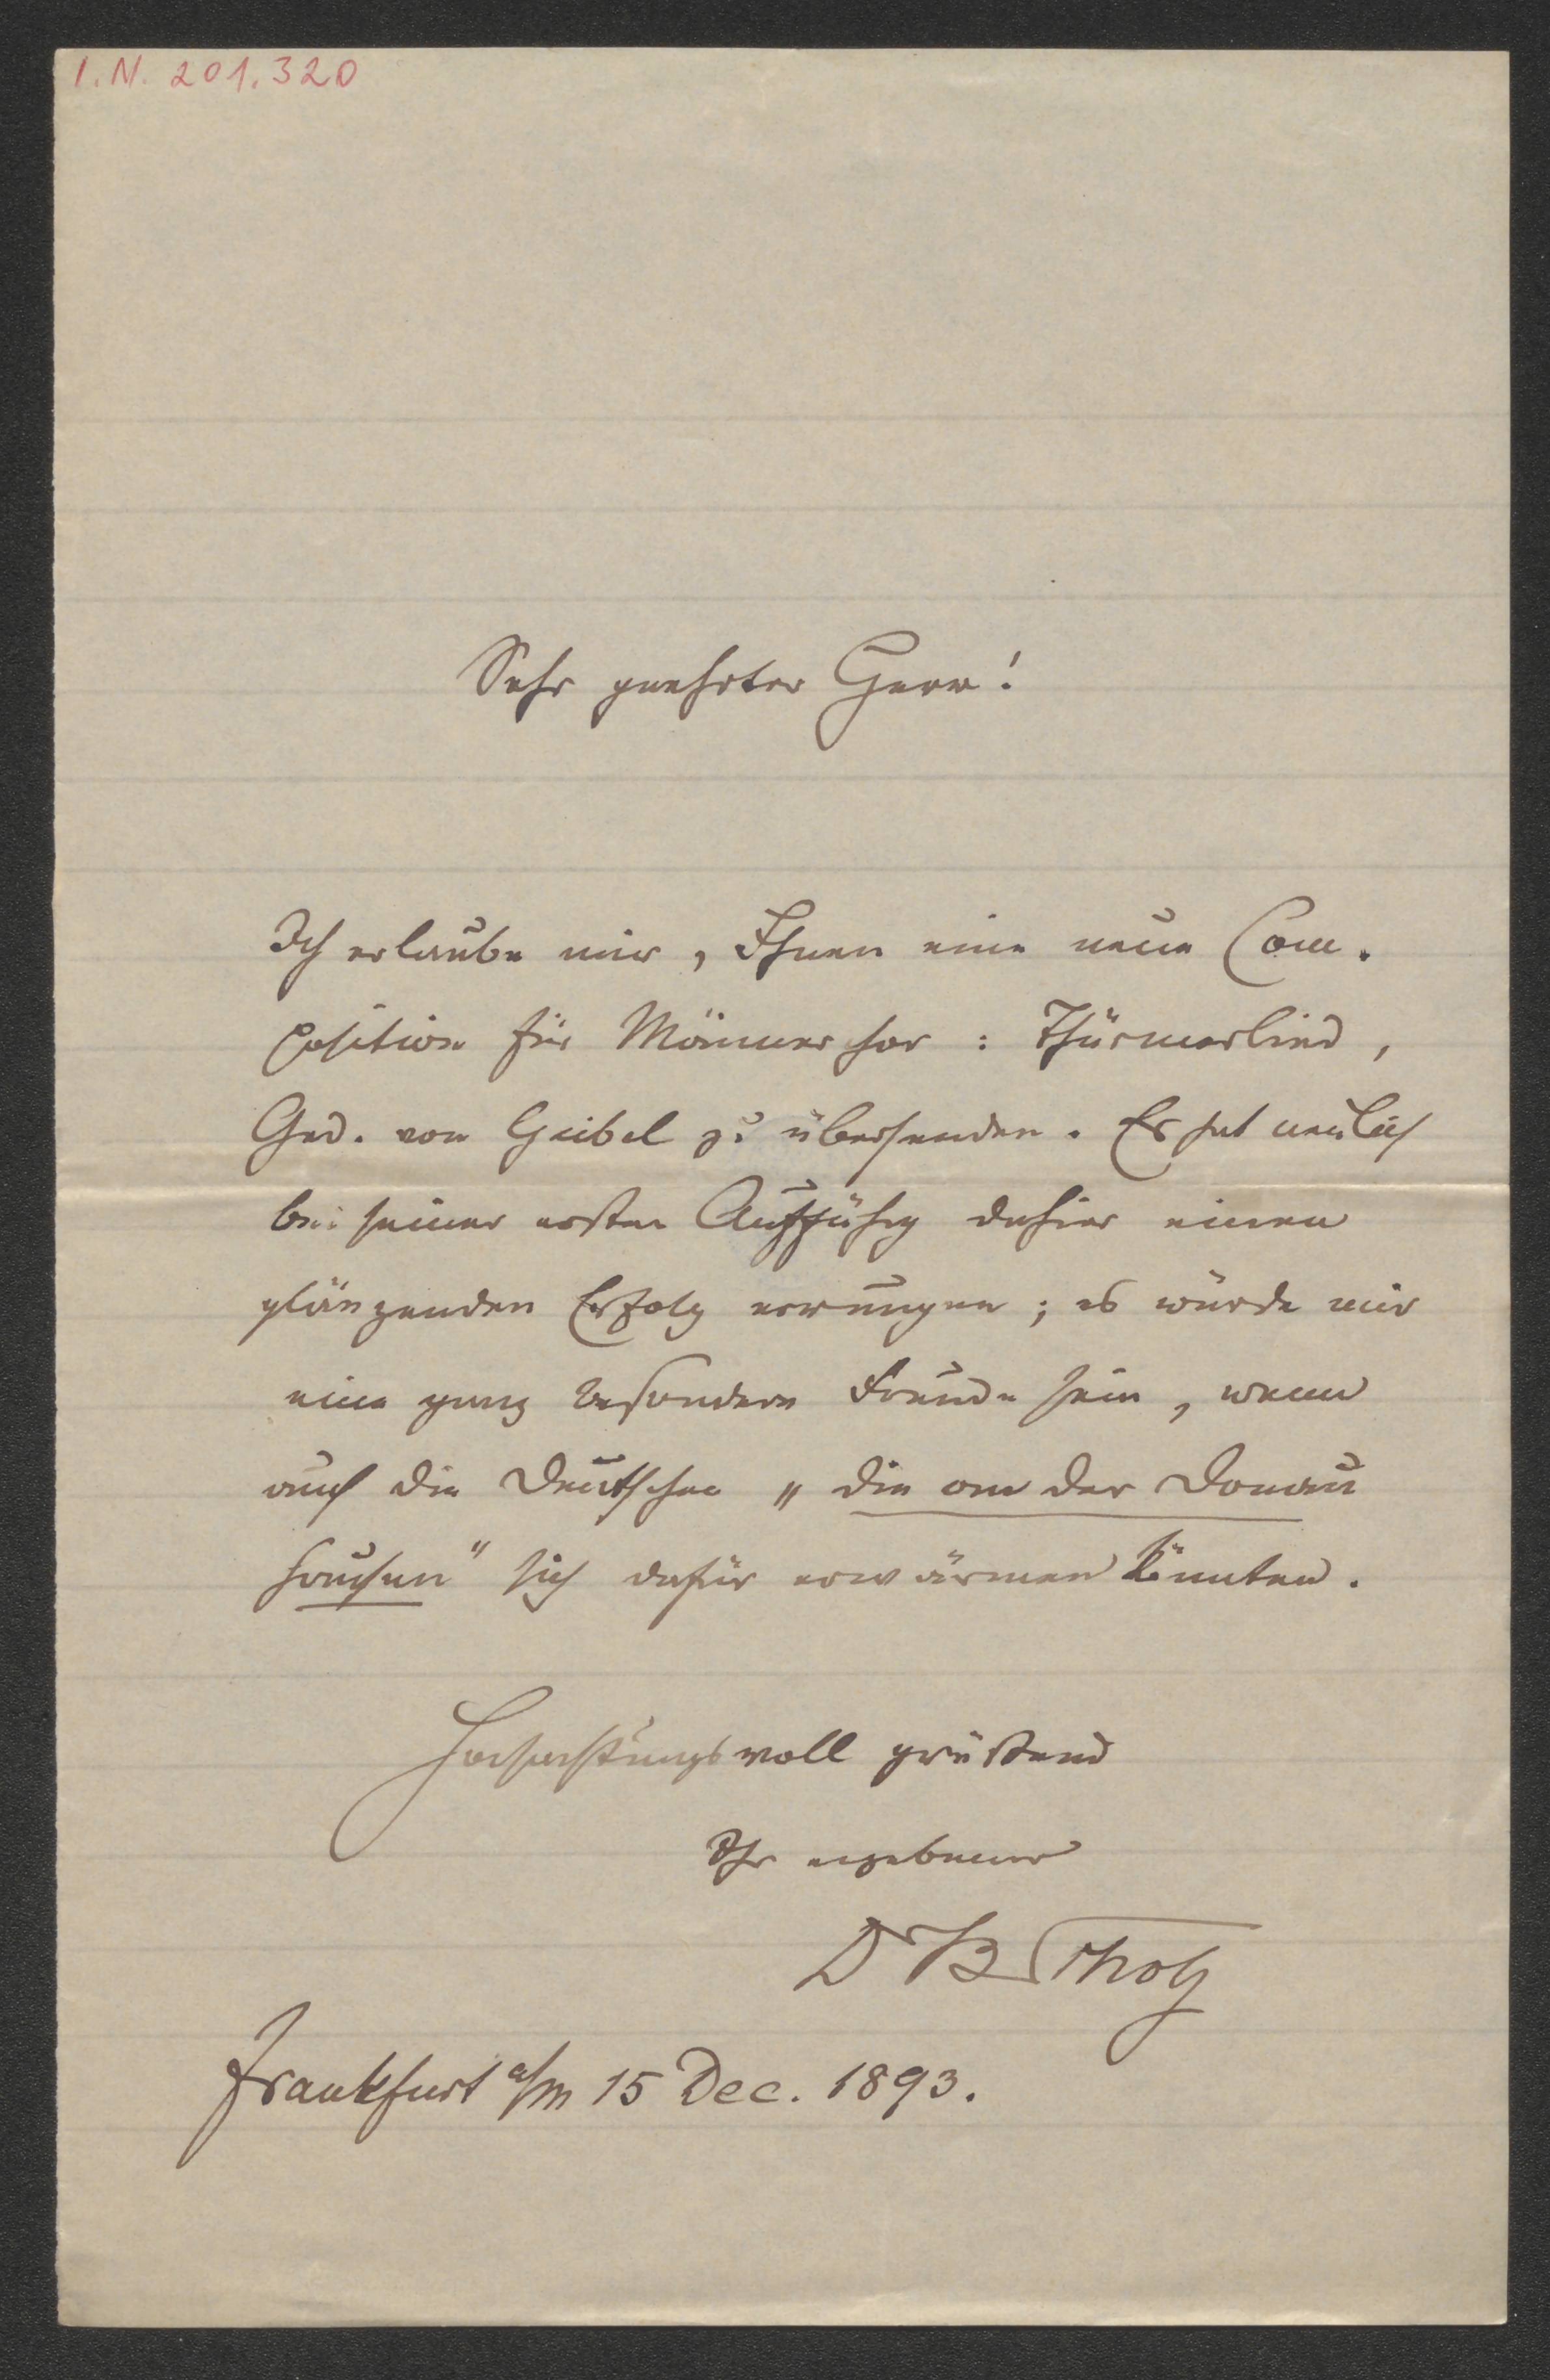 I.N. 201.320
Sehr geehrter Herr!
Ich erlaube mir, Ihnen eine neue Com.
position für Männerchor: Thürmerlied,
Ged. von Geibel zu übersenden. Es hat neulich
bei seiner ersten Aufführg dahier einen
glänzenden Erfolg errungen; es würde mir
eine ganz besondere Freude sein, wenn
auch die Deutschen „die an der Donau
hausen" sich dafür erwärmen könnten.
Hochachtungsvoll grüßend
Ihr ergebener
Dr B Scholz
Frankfurt a/M 15 Dec. 1893.